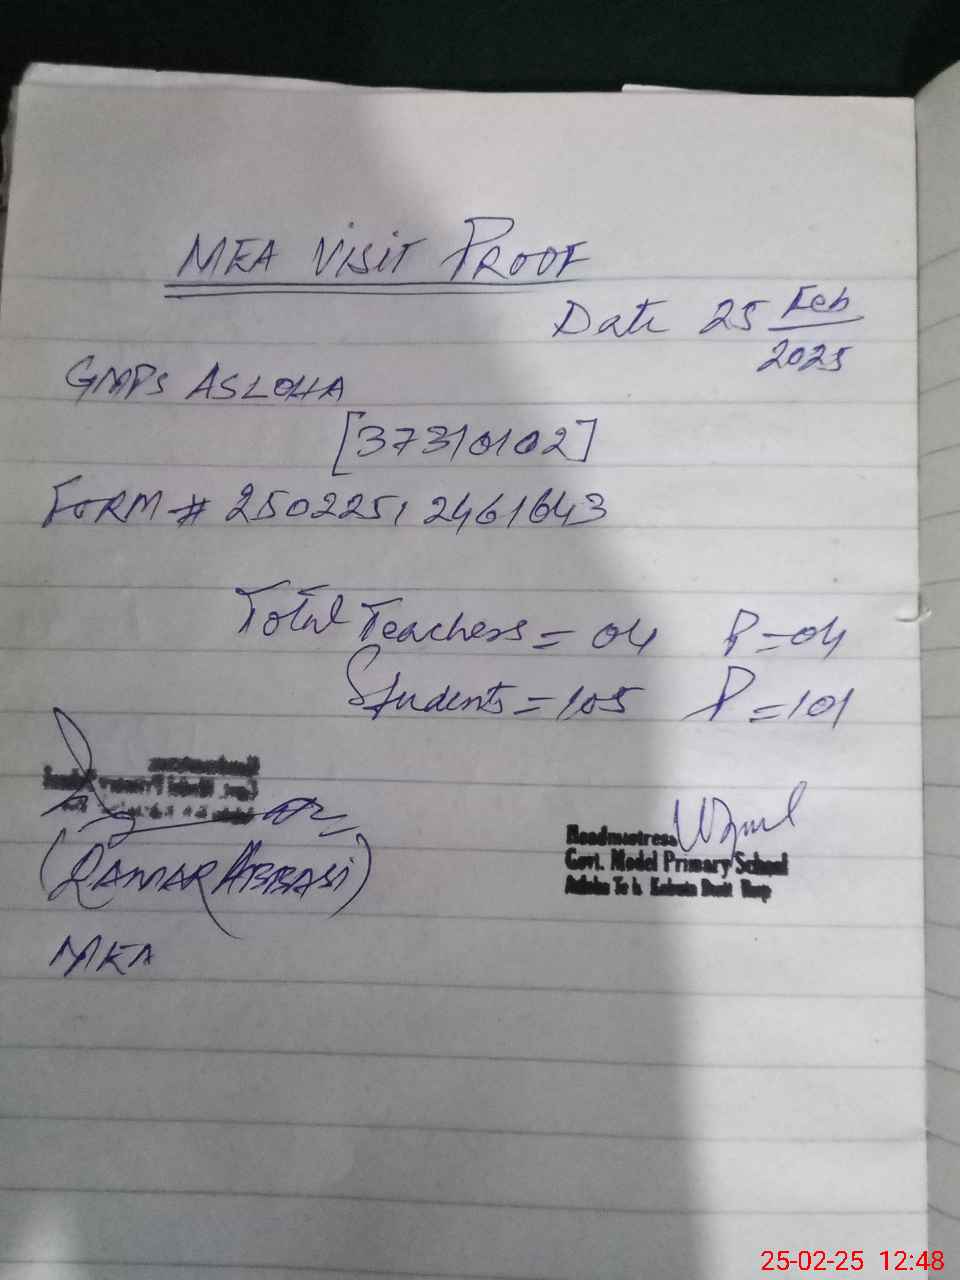 MEA VISIT PROOF
Date 25 Feb
2025
GMPS ASLOHA
[37310102]
FORM # 250225, 2461643
Total Teachers = 04 P = 04
Students = 105 P = 101
(QAMAR ABBASI)
MEA
Headmistress
Govt. Model Primary School
25-02-25 12:48